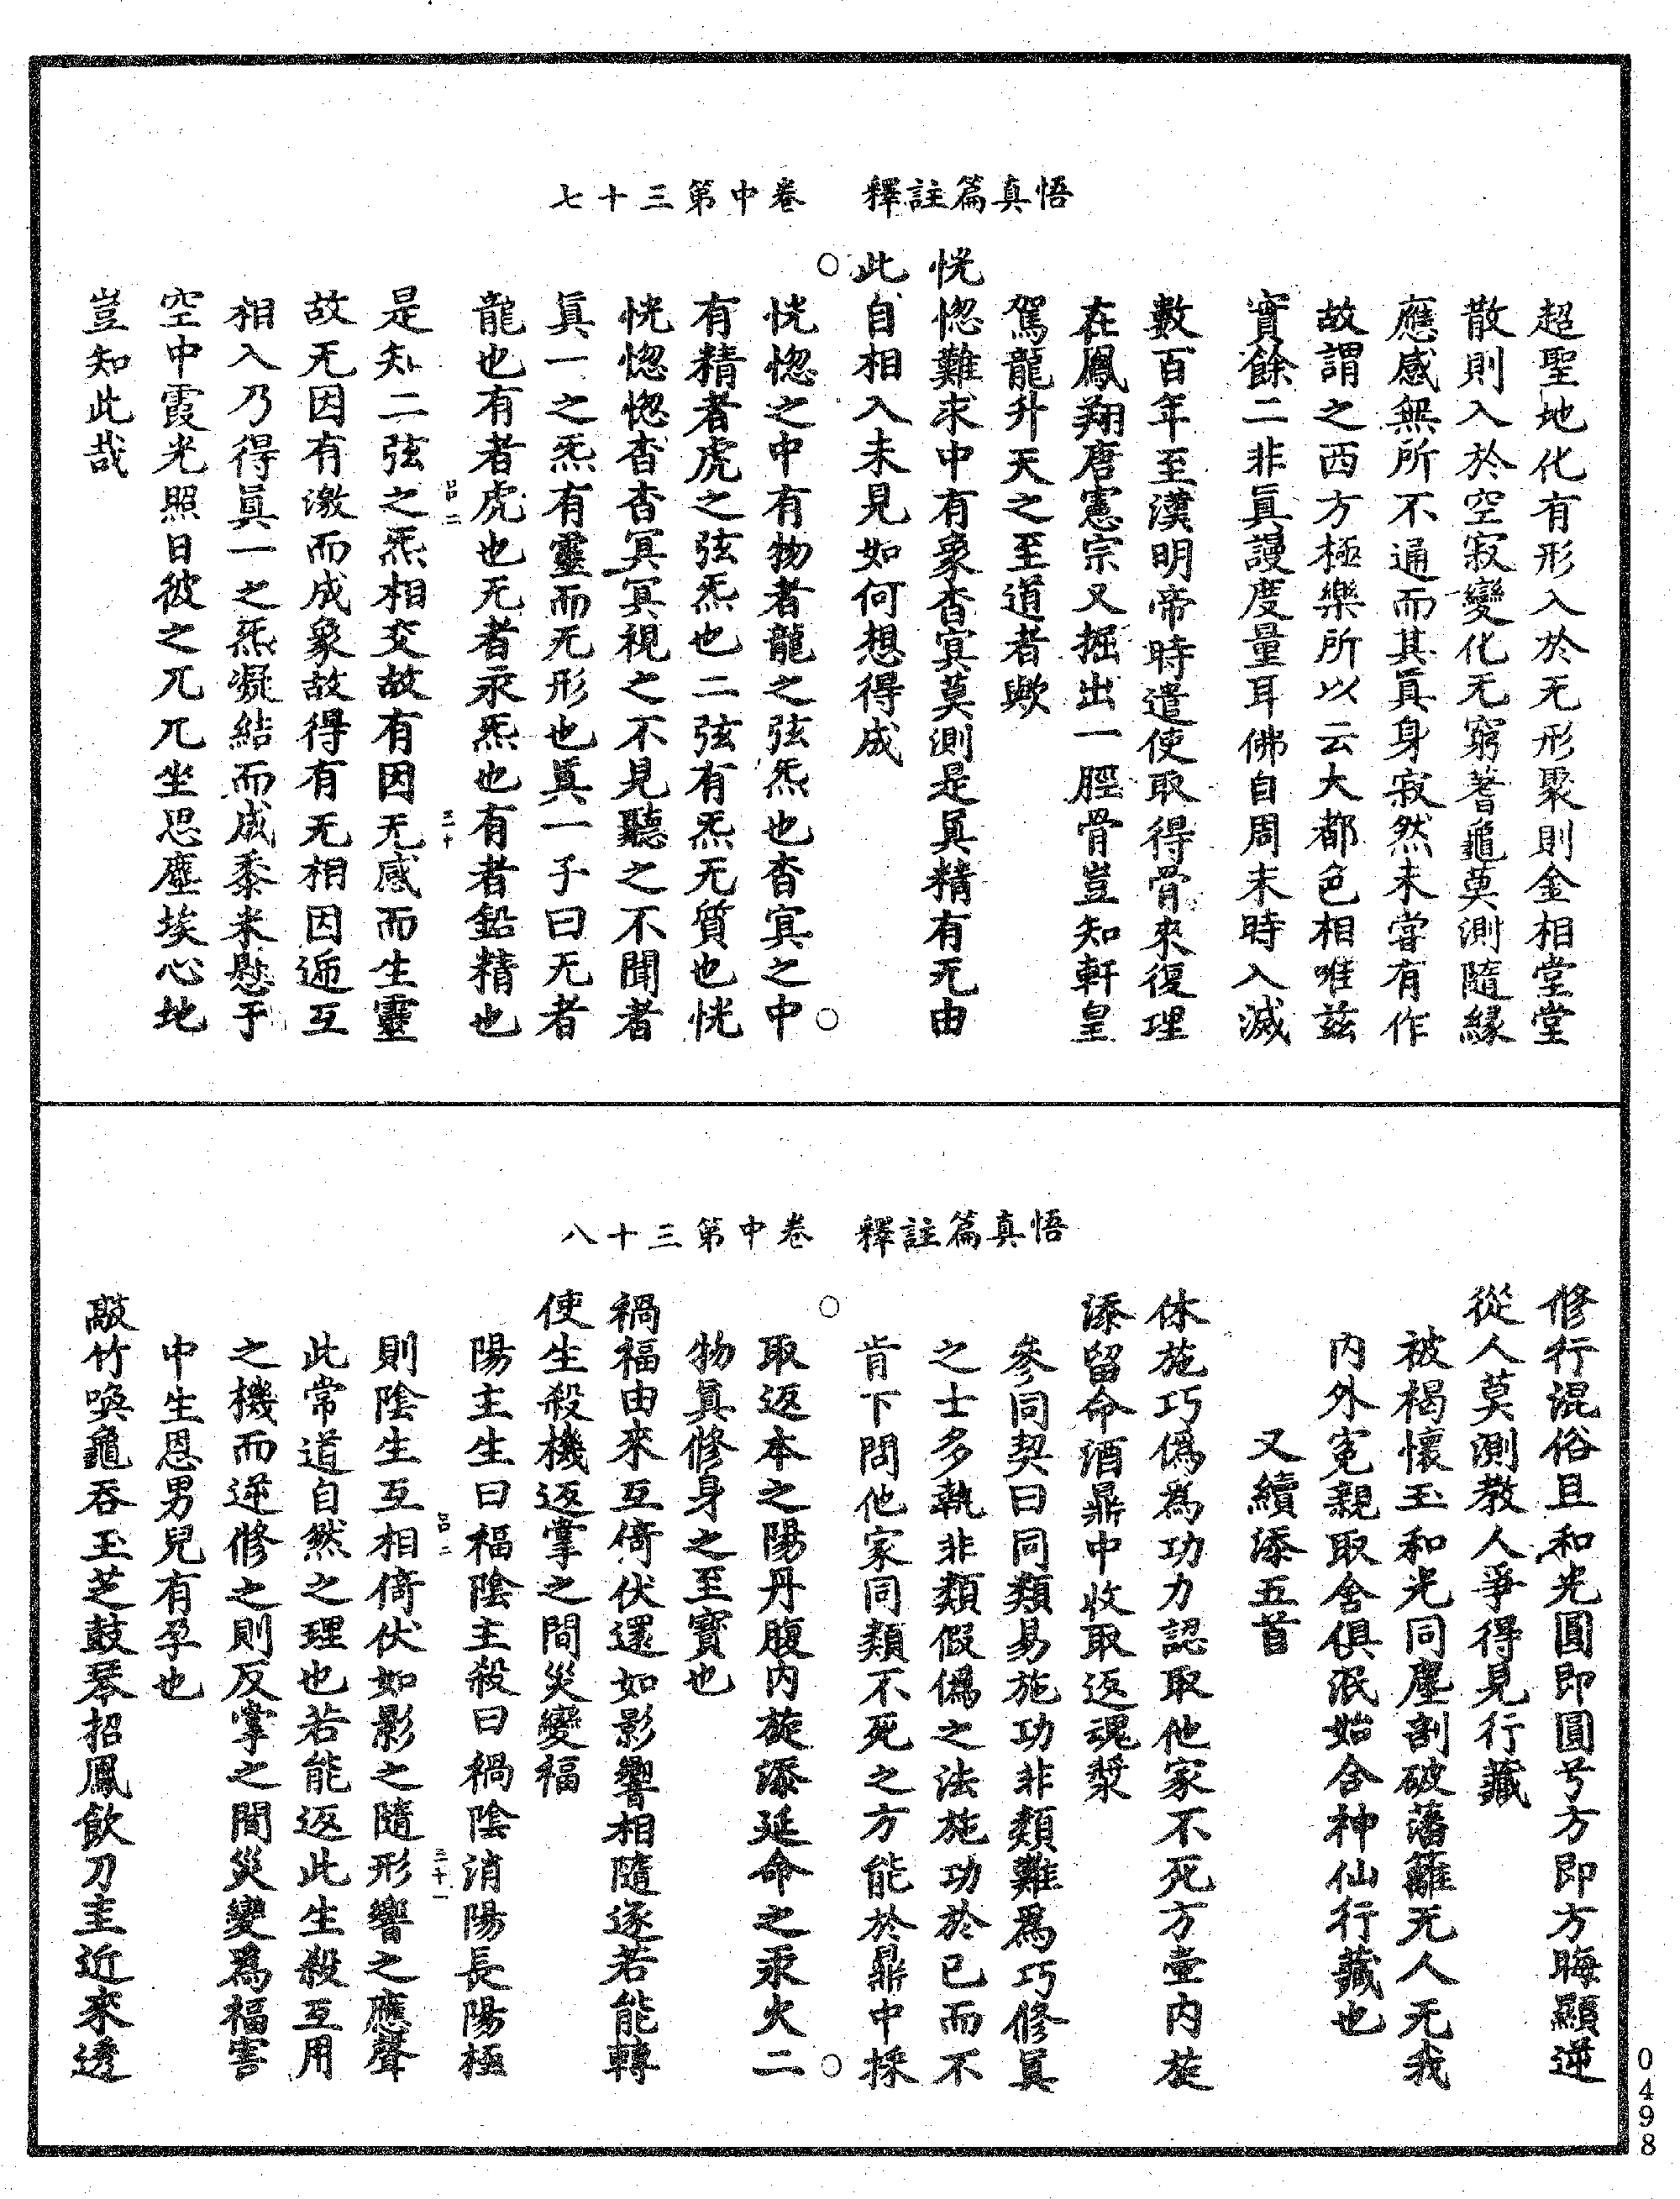 悟真篇註釋　卷中第三十七
超聖地化有形入於无形聚則金相堂堂
散則入於空寂變化无窮蓍龜莫測隨緣
應感無所不通而其真身寂然未嘗有作
故謂之西方極樂所以云大都色相唯兹
實餘二非真謾度量耳佛自周末時入滅
數百年至漢明帝時遣使取得骨來復理
在鳳翔唐憲宗又掘出一脛骨豈知軒皇
駕龍升天之至道者歟
恍惚難求中有象杳冥莫測是真精有无由
此自相入未見如何想得成
○
恍惚之中有物者龍之弦炁也杳冥之中
○
有精者虎之弦炁也二弦有炁无質也恍
恍惚惚杳杳冥冥視之不見聽之不聞者
真一之炁有靈而无形也真一子曰无者
龍也有者虎也无者汞炁也有者鉛精也
呂二　三十
是知二弦之炁相交故有因无感而生靈
故无因有激而成象故得有无相因遞互
相入乃得真一之炁凝結而成黍米懸于
空中霞光照日彼之兀兀坐思塵埃心地
豈知此哉
悟真篇註釋　卷中第三十八
修行混俗且和光圓即圓兮方即方晦顯逆
從人莫測教人爭得見行藏
被褐懷玉和光同塵剖破藩籬无人无我
内外寃親取舍俱泯始合神仙行藏也
又續添五首
休施巧偽為功力認取他家不死方壼内旋
添留命酒鼎中收取返魂漿
參同契曰同類易施功非類難為巧修真
之士多執非類假偽之法施功於已而不
肯下問他家同類不死之方能於鼎中採
○
○
取返本之陽丹腹内旋添延命之汞火二
物真修身之至寳也
禍福由來互倚伏還如影響相隨逐若能轉
使生殺機返掌之間災變福
陽主生曰福陰主殺曰禍陰消陽長陽極
呂二　三十一
則陰生互相倚伏如影之隨形響之應聲
此常道自然之理也若能返此生殺互用
之機而逆修之則反掌之間災變爲福害
中生恩男兒有孕也
敲竹喚龜吞玉芝鼓琴招鳳飲刀圭近來透
0498